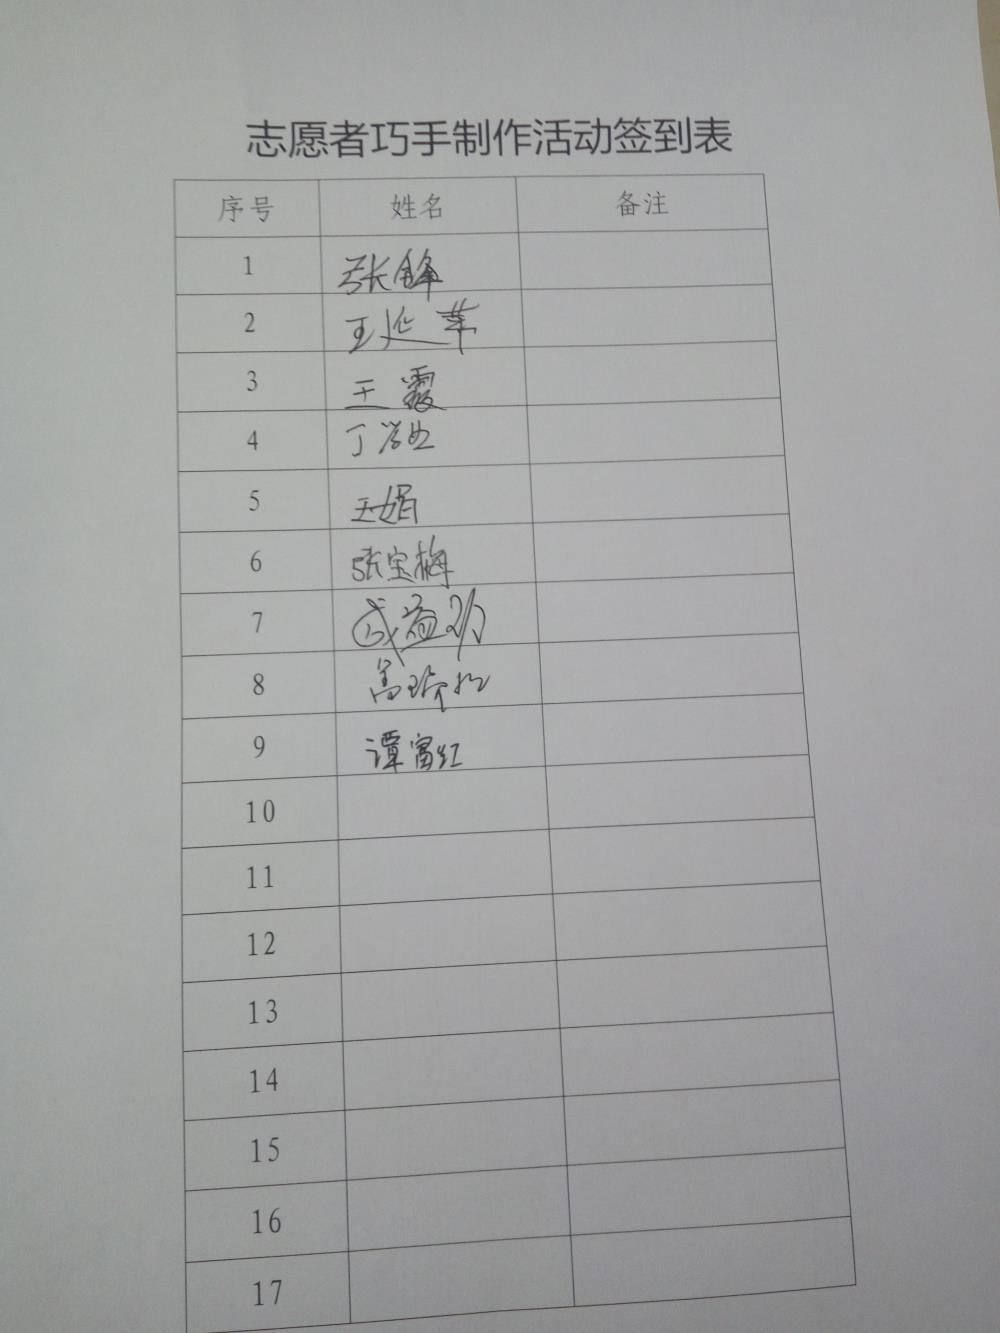 志愿者巧手制作活动签到表
序号 姓名 备注
1 张锋
2 王延苹
3 王霞
4 丁
5 王娟
6 张宝梅
7 成益
8
9 谭富红
10
11
12
13
14
15
16
17